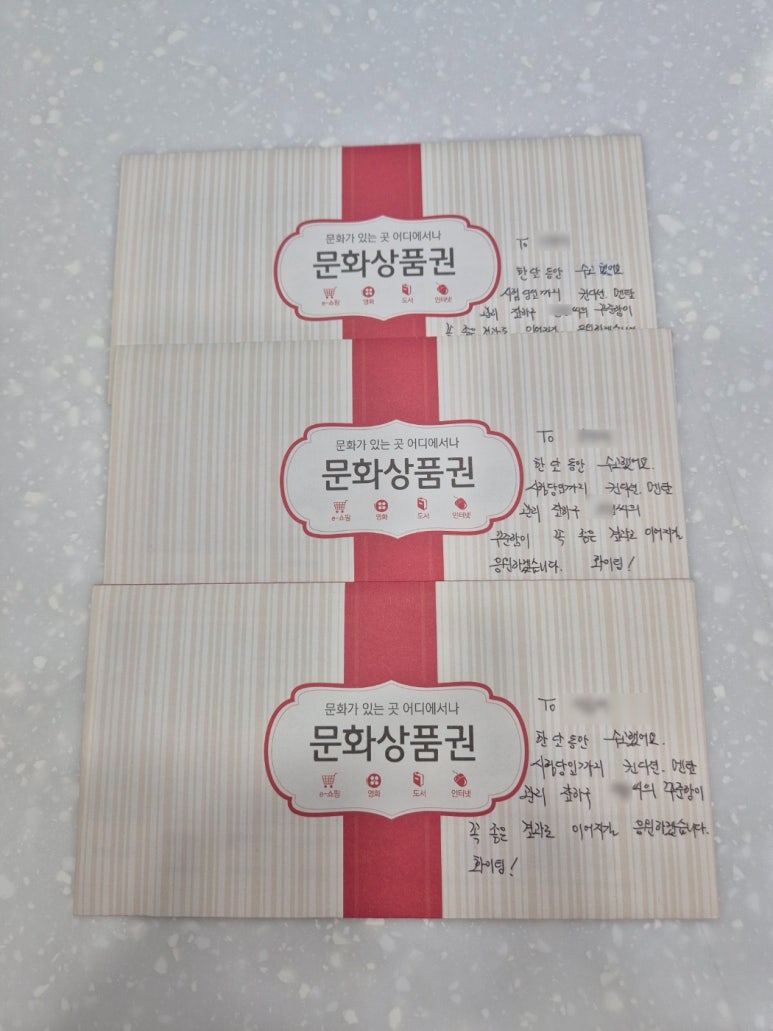 문화가 있는 곳 어디에서나
문화상품권
e-쇼핑 영화 도서 인터넷
To
한 달 동안 수고했어요
시험 당일까지 컨디션, 멘탈
관리 잘하구 씨의 꾸준함이
꼭 좋은 결과로 이어지길 응원하겠습니다
문화가 있는 곳 어디에서나
문화상품권
e-쇼핑 영화 도서 인터넷
To
한 달 동안 수고했어요.
시험당일까지 컨디션, 멘탈
관리 잘하구 씨의
꾸준함이 꼭 좋은 결과로 이어지길
응원하겠습니다. 화이팅!
문화가 있는 곳 어디에서나
문화상품권
e-쇼핑 영화 도서 인터넷
To
한 달 동안 수고했어요.
시험당일까지 컨디션, 멘탈
관리 잘하구 씨의 꾸준함이
꼭 좋은 결과로 이어지길 응원하겠습니다.
화이팅!